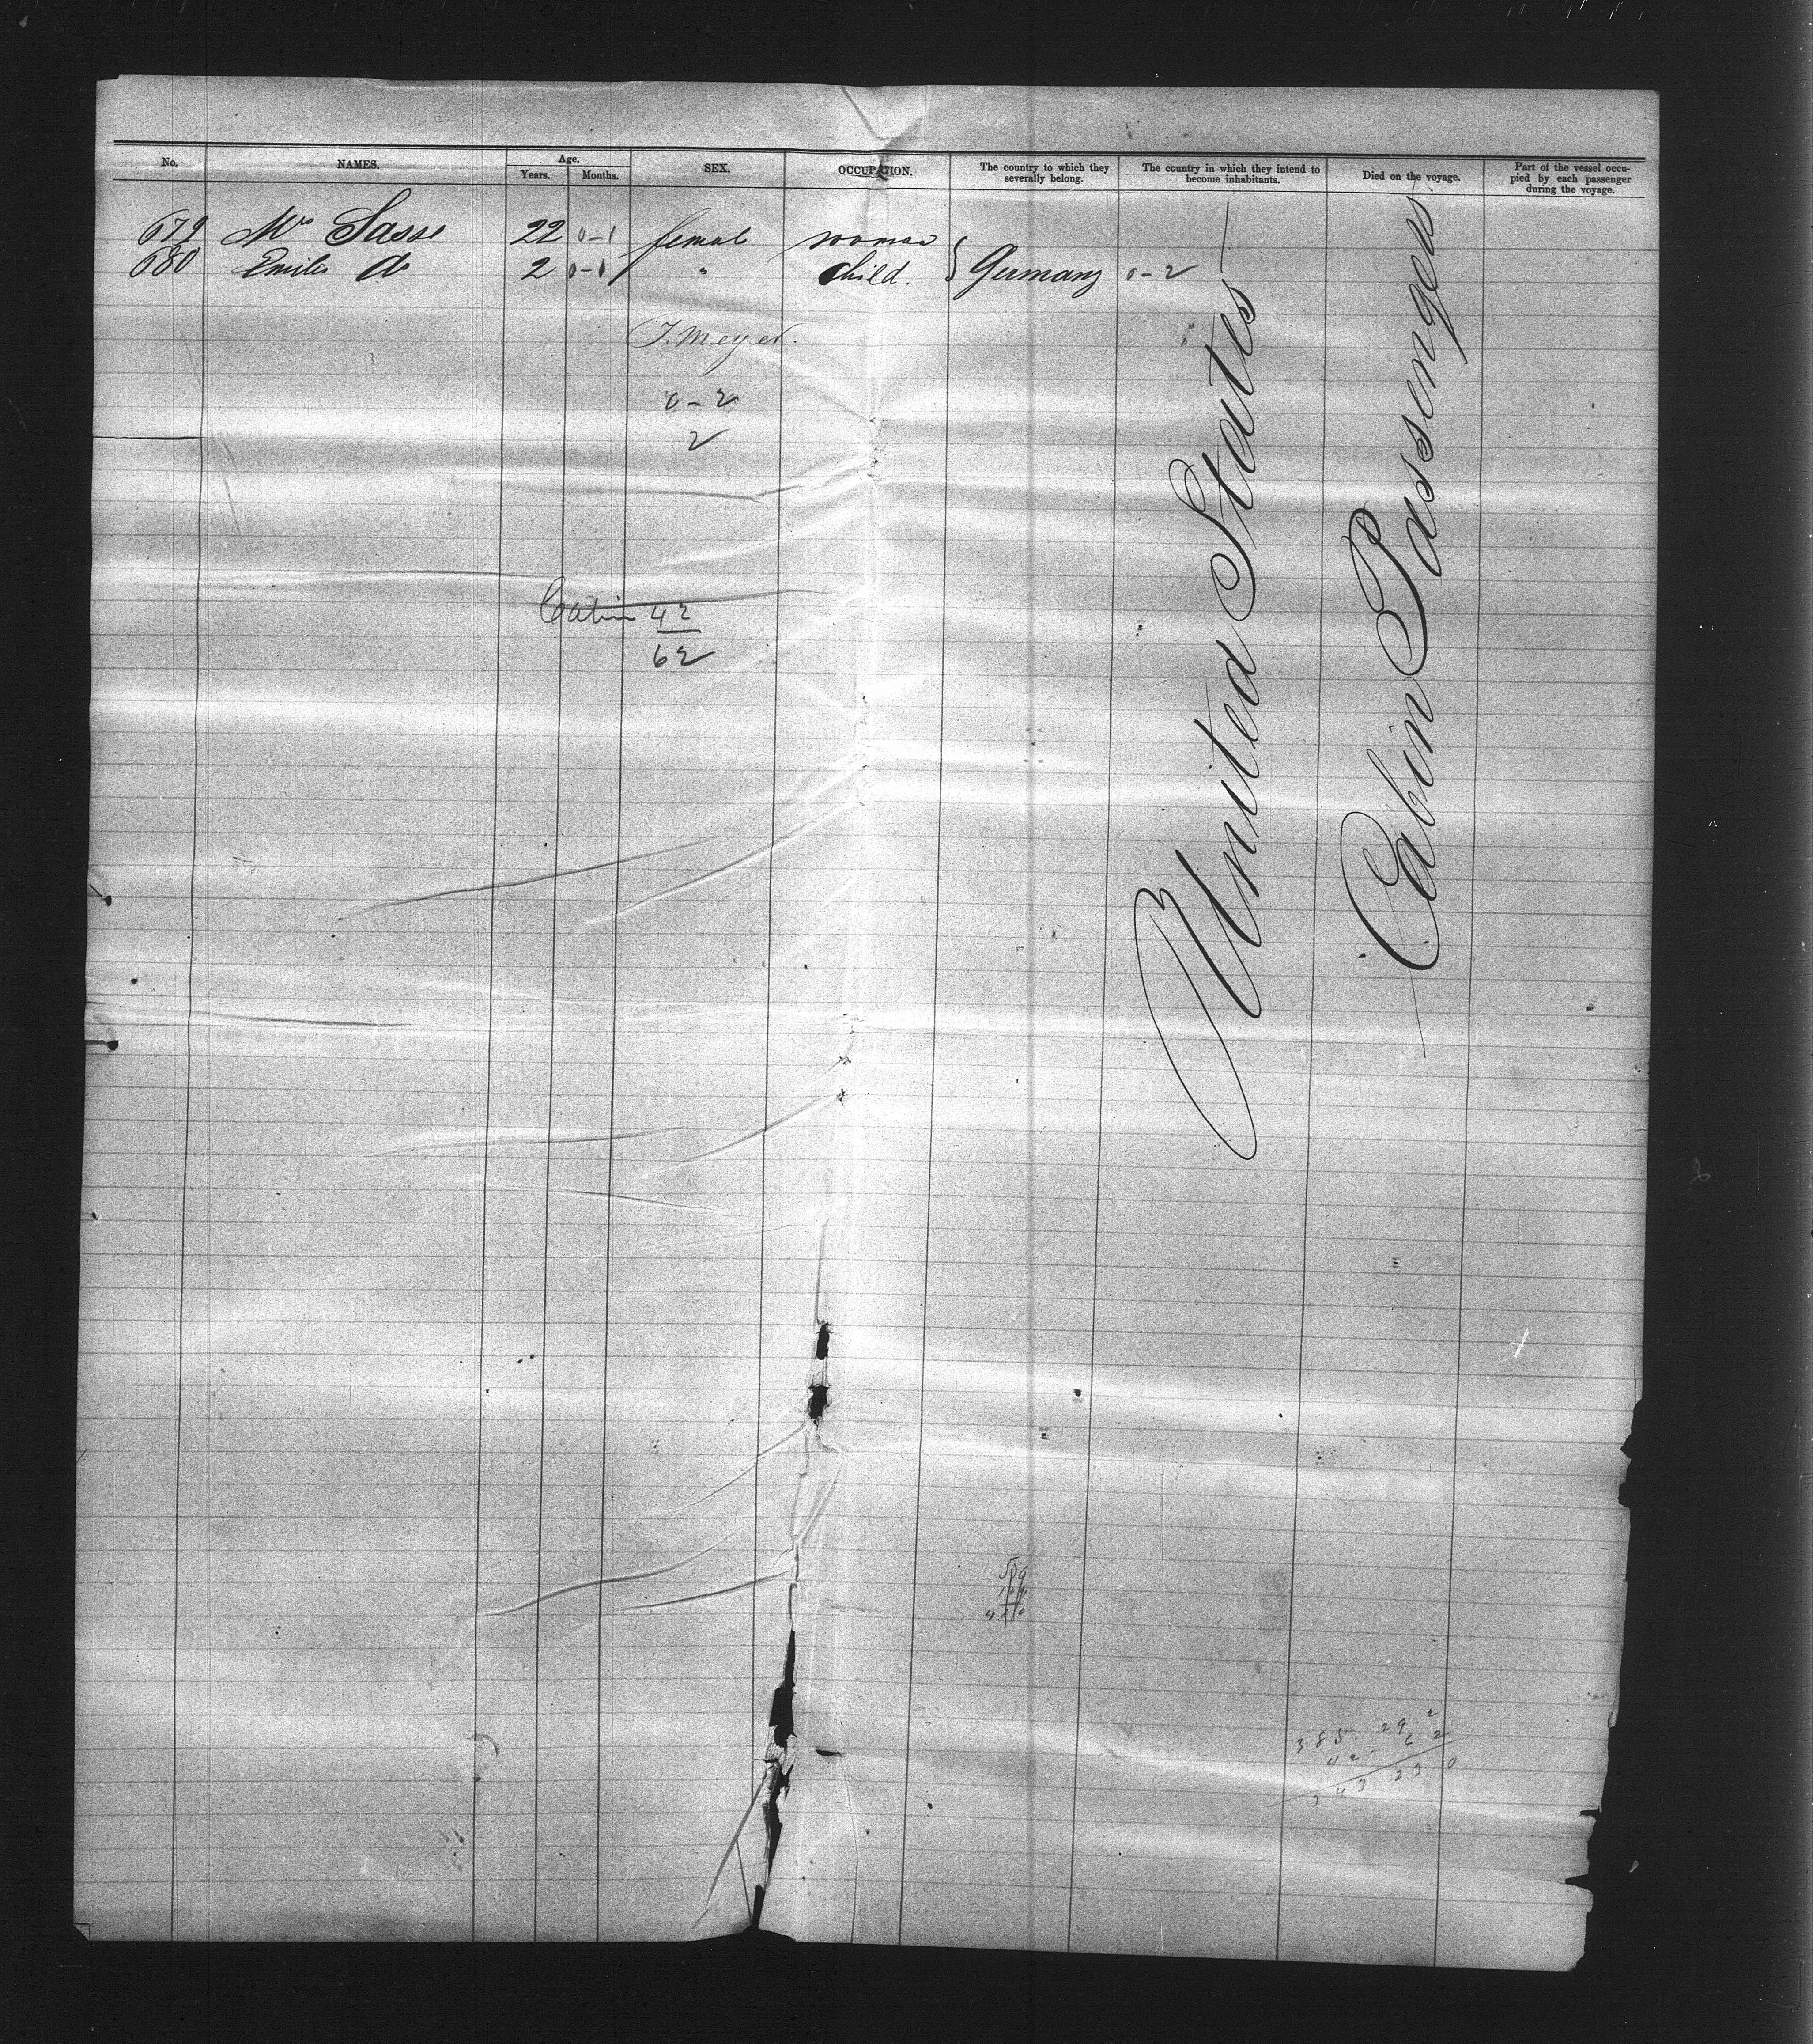 No. NAMES. Age. SEX. OCCUPATION. The country to which they severally belong. The country in which they intend to become inhabitants. Died on the voyage. Part of the vessel occupied by each passenger during the voyage.
Years. Months.
679 Mrs Sasse 22 0-1 female woman
680 Emilie do 2 0-1 " child. } Germany 0-2
J. Meyer.
0-2
2
Cabin 42
62
United States
Cabin Passengers
385 29 2
42 6 2
343 23 0